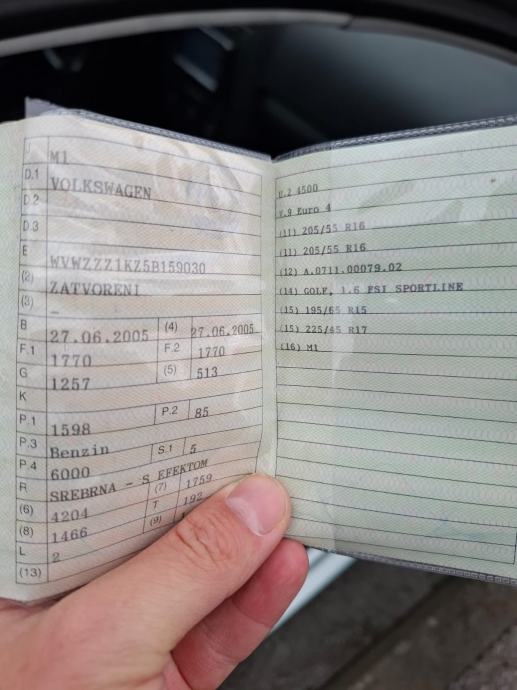 J M1
D.1 VOLKSWAGEN
D.2
D.3
E WVWZZZ1KZ5B159030
(2) ZATVORENI
(3) –
B 27.06.2005 (4) 27.06.2005
F.1 1770 F.2 1770
G 1257 (5) 513
K
P.1 1598 P.2 85
P.3 Benzin S.1 5
P.4 6000
R SREBRNA - S EFEKTOM
(6) 4204 (7) 1759
(8) 1466 T 192
L 2 (9)
(13)
U.2 4500
V.9 Euro 4
(11) 205/55 R16
(11) 205/55 R16
(12) A.0711.00079.02
(14) GOLF, 1.6 FSI SPORTLINE
(15) 195/65 R15
(15) 225/45 R17
(16) M1